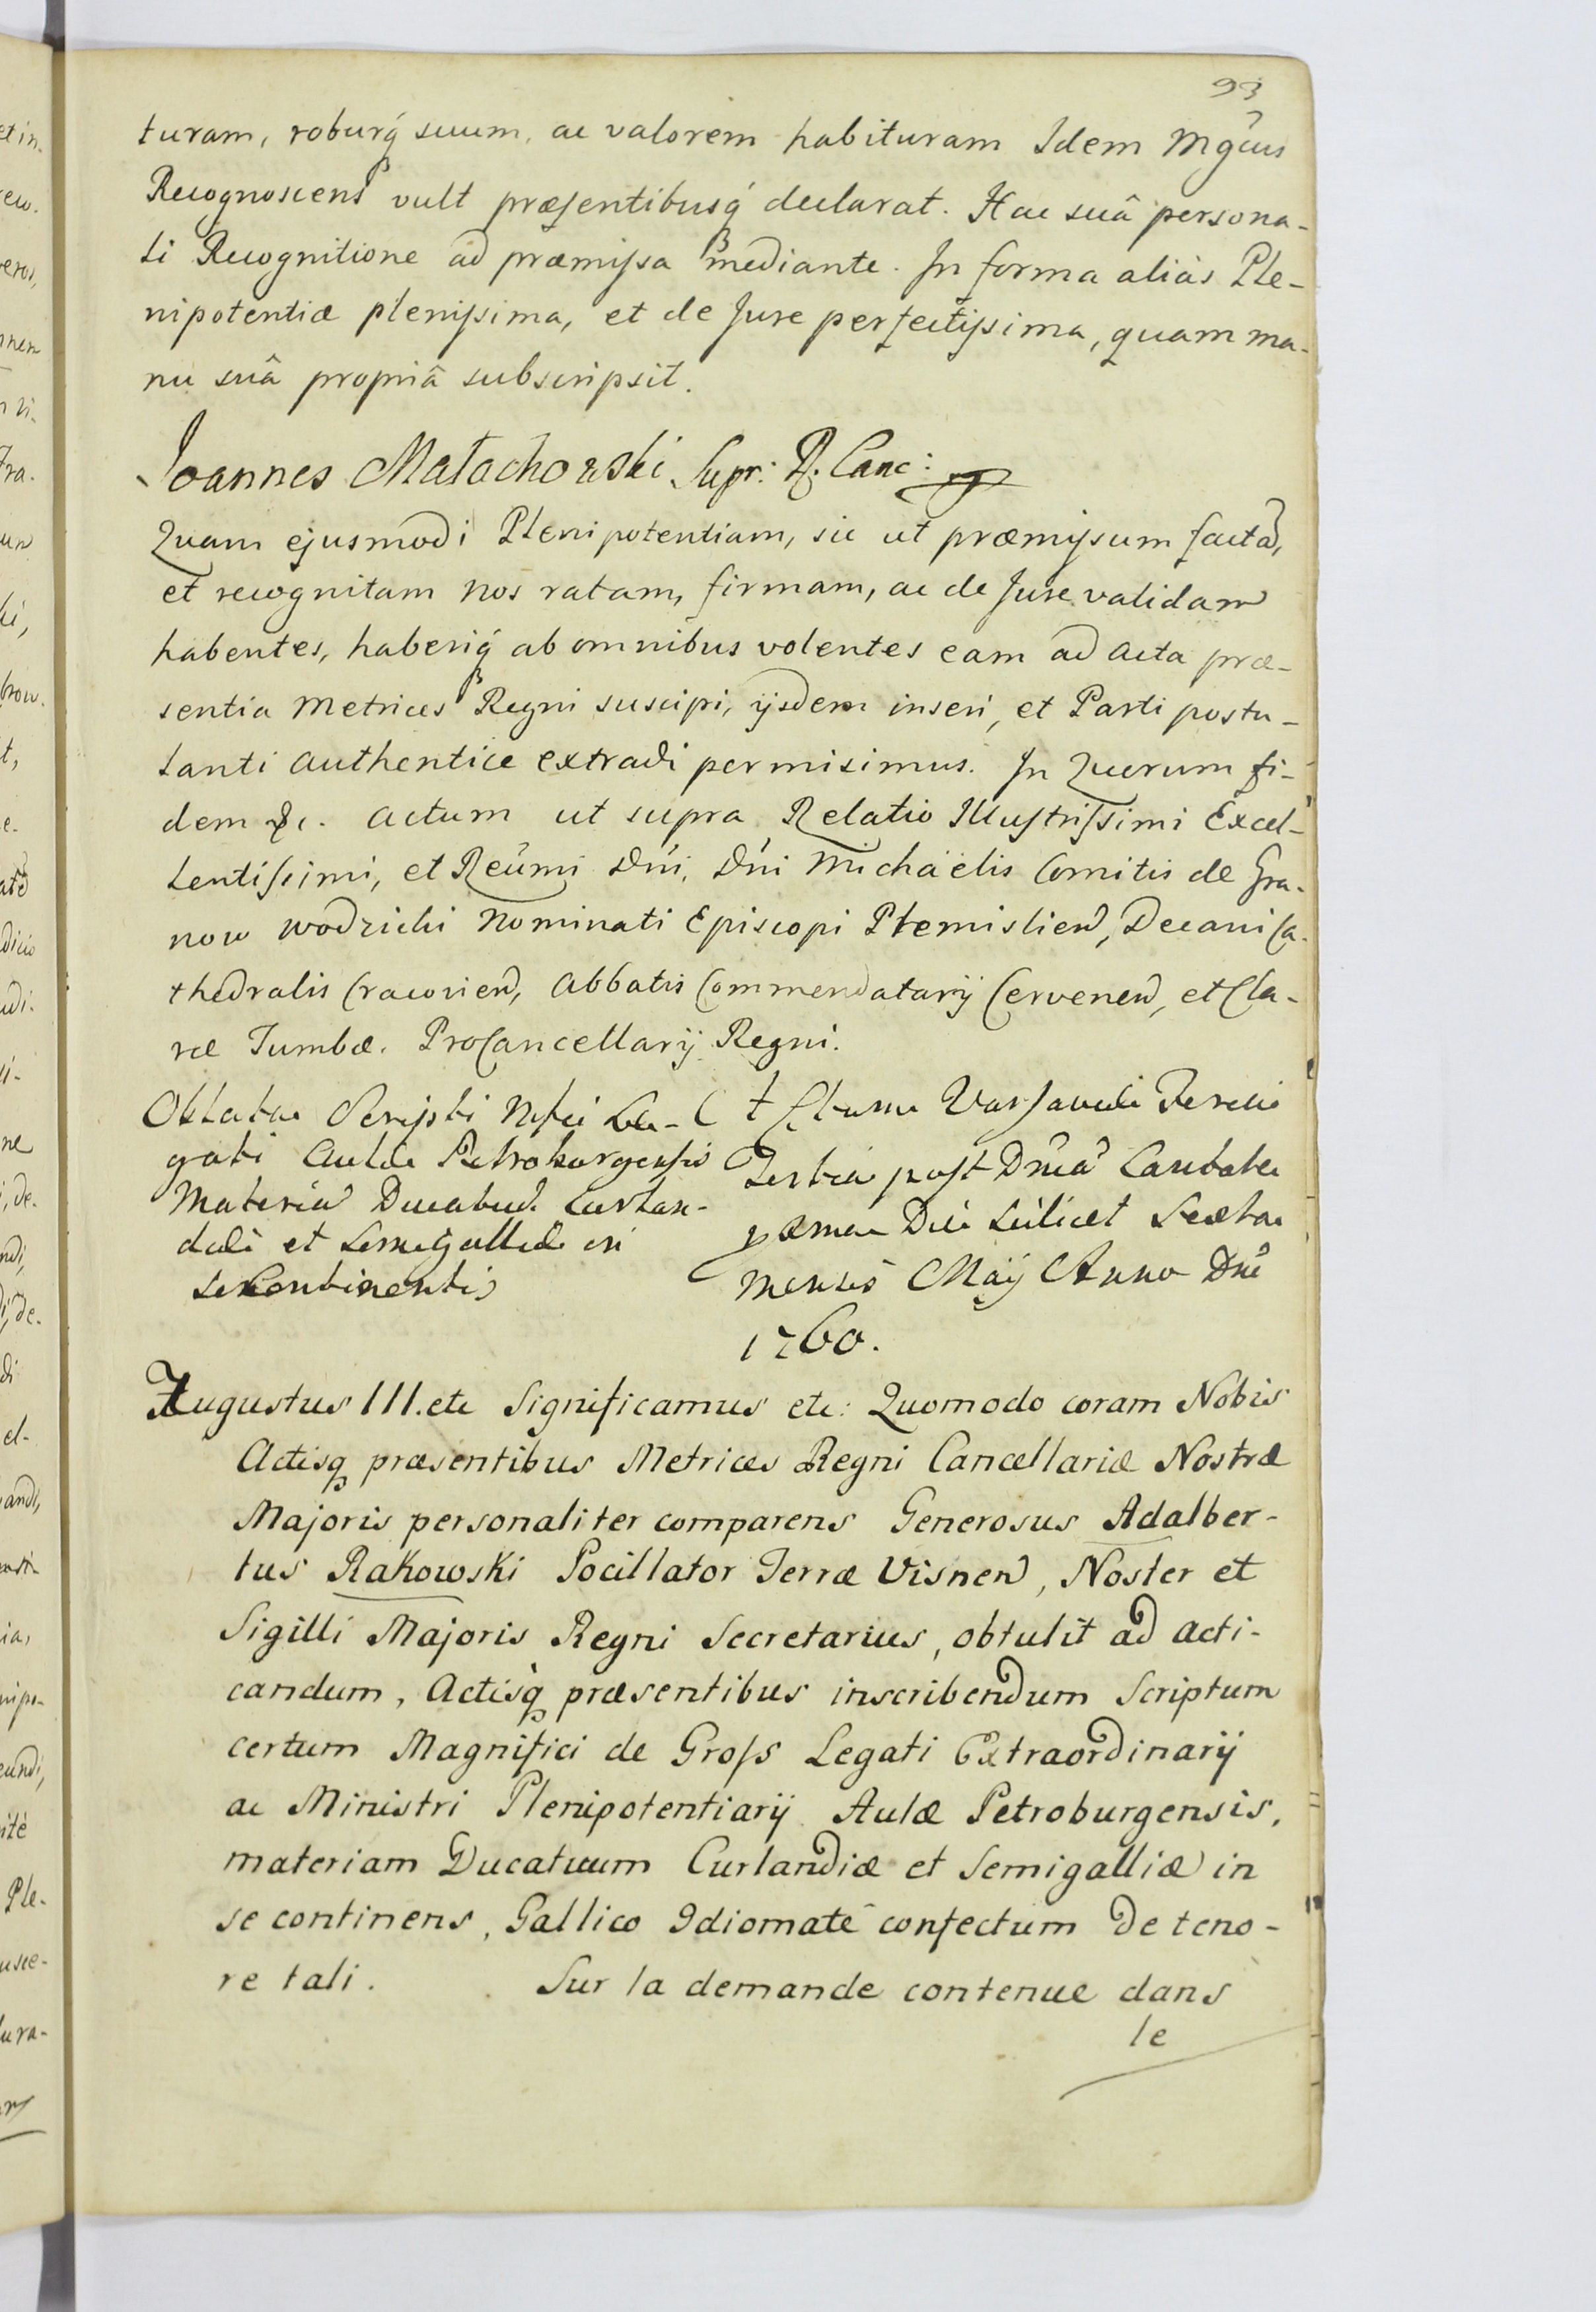 93
turam, roburq́ suum, ac valorem habituram Idem Mg̃cus
Recognoscens vult præsentibusq́ declarat. Hac suâ persona-
li Recognitione ad præmissa mediante. In forma aliàs Ple-
nipotentiæ plenissima, et de Jure perfectissima, quam ma-
nu suâ propriâ subscripsit.
Joannes Małachowski Supr: R. Canc:
Quam ejusmodi Plenipotentiam, sic ut præmissum factã,
et recognitam nos ratam, firmam, ac de Jure validam
habentes, haberiq́ ab omnibus volentes eam ad acta præ-
sentia Metrices Regni suscipi, ijsdem inseri, et Parti postu-
lanti authentice extradi permisimus. In Quorum fi-
dem &c. actum ut supra Relatio Illustrissimi Excel-
lentissimi, et Reũmi Dñi, Dñi Michaëlis Comitis de Gra-
now Wodzicki Nominati Episcopi Premislien, Decani Ca-
thedralis Cracovien, Abbatis Commendatarij Cervenen, et Cla-
ræ Tumbæ. ProCancellarij Regni.
Oblata Scripti Mfci Le-
gati Aulæ Petroburgensis
Materiã Ducatuũ Curlan-
diæ et Semigalliæ in
se Continentis
Actum Varsaviæ Feria
Tertia post Dñicã Cantate
proxima Die scilicet Sexta
Mensis Maij Anno Dñi
1760.
Augustus III. etc Significamus etc: Quomodo coram Nobis
Actisq præsentibus Metrices Regni Cancellariæ Nostræ
Majoris personaliter comparens Generosus Adalber-
tus Rakowski Pocillator Terræ Visnen, Noster et
Sigilli Majoris Regni Secretarius, obtulit ad acti-
candum, Actisq̀ præsentibus inscribendum Scriptum
certum Magnifici de Gross Legati Extraordinarij
ac Ministri Plenipotentiarij Aulæ Petroburgensis,
materiam Ducatuum Curlandiæ et Semigalliæ in
se continens, Gallico Idiomate confectum de teno-
re tali. Sur la demande contenue dans
le